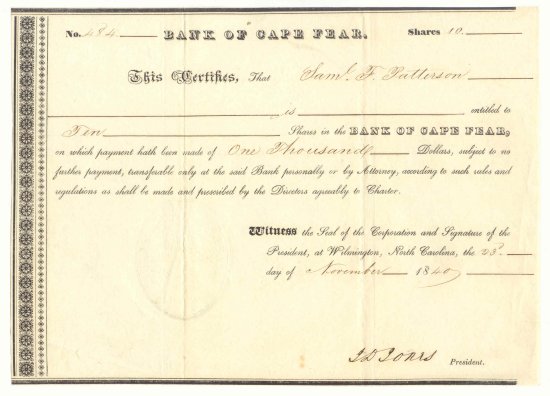 No. 484. BANK OF CAPE FEAR. Shares 10.
This Certifies, That Saml. F. Patterson
is entitled to
Ten Shares in the BANK OF CAPE FEAR,
on which payment hath been made of One Thousand Dollars, subject to no
further payment, transferable only at the said Bank personally or by Attorney, according to such rules and
regulations as shall be made and prescribed by the Directors agreeably to Charter.
Witness the Seal of the Corporation and Signature of the
President, at Wilmington, North Carolina, the 23d.
day of November 1840
J D Jones President.